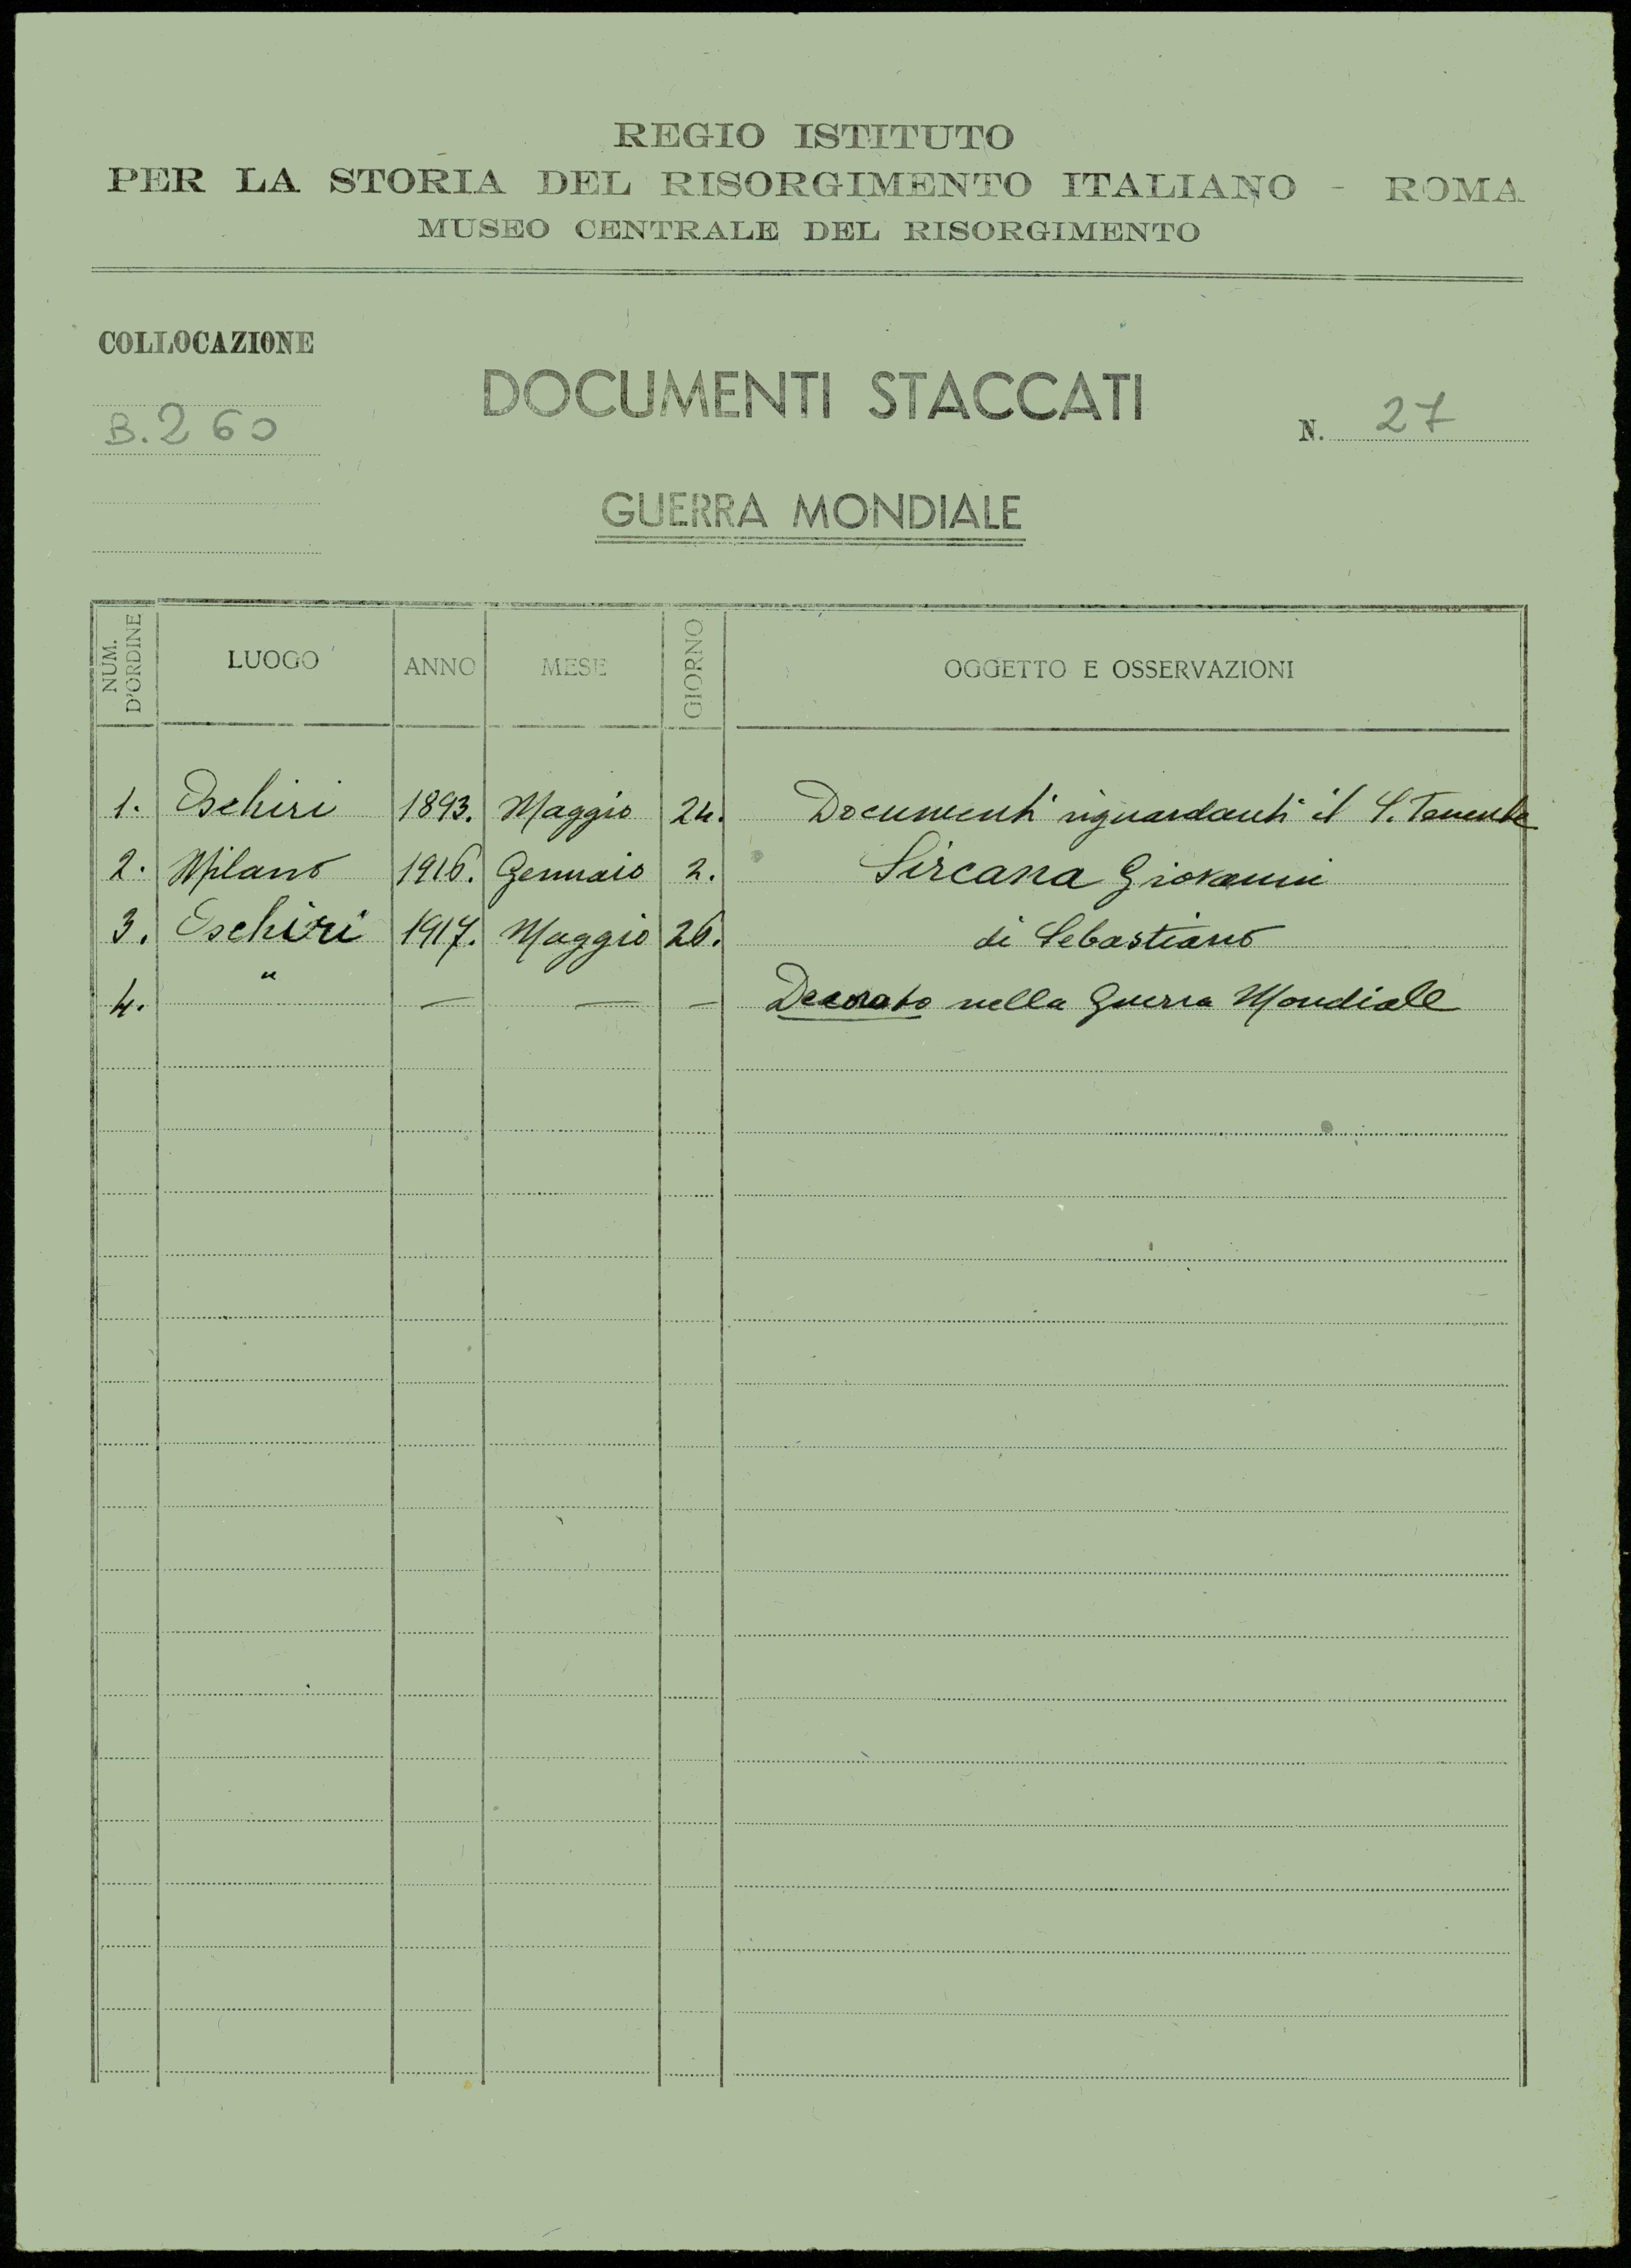 REGIO ISTITUTO
PER LA STORIA DEL RISORGIMENTO ITALIANO - ROMA
MUSEO CENTRALE DEL RISORGIMENTO
COLLOCAZIONE
B. 260
DOCUMENTI STACCATI
N. 27
GUERRA MONDIALE
NUM. D'ORDINE LUOGO ANNO MESE GIORNO OGGETTO E OSSERVAZIONI
1. Oschiri 1893. Maggio 24. Documenti riguardanti il S. Tenente
2. Milano 1916. Gennaio 2. Sircana Giovanni
3. Oschiri 1917. Maggio 26. di Sebastiano
4. " — — — Decorato nella Guerra Mondiale